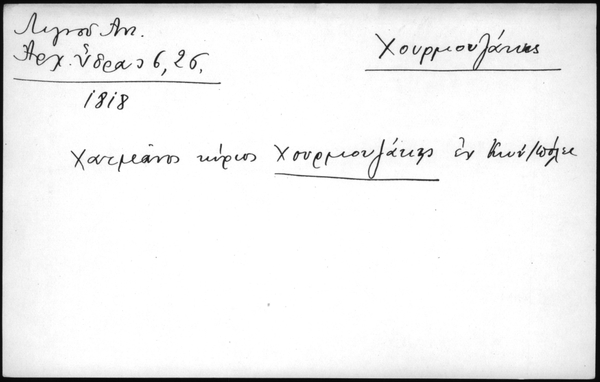 Λιγνού Αντ.
Αρχ. Ύδρας 6, 26,
1818
Χουρμουζάκης
κύριος Χουρμουζάκης ἐν Κων/πόλει